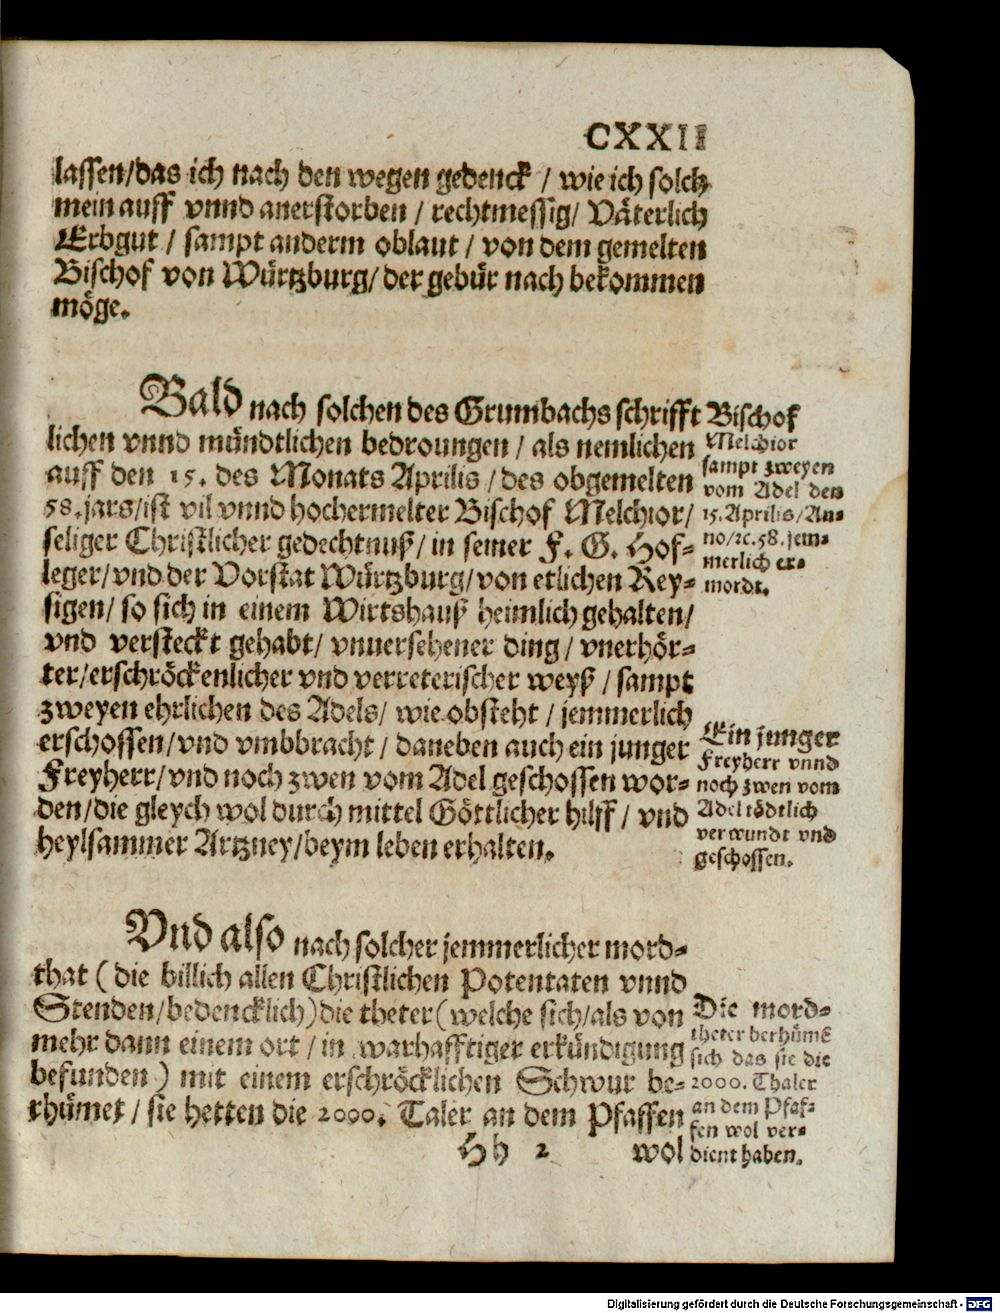 CXXII
lassen/das ich nach den wegen gedenck / wie ich solch
mein auff vnnd anerstorben / rechtmessig/ Väterlich
Erbgut / sampt anderm oblaut / von dem gemelten
Bischof von Würtzburg/ der gebür nach bekommen
möge.
Bald nach solchen des Grumbachs schrifft
lichen vnnd mündtlichen bedroungen / als nemlichen
auff den 15. des Monats Aprilis / des obgemelten
58. jars/ist vil vnnd hochermelter Bischof Melchior/
seliger Christlicher gedechtnuß/ in seiner F. G. Hof-
leger/vnd der Vorstat Würtzburg/von etlichen Rey-
sigen/ so sich in einem Wirtshauß heimlich gehalten/
vnd versteckt gehabt/ vnuersehener ding / vnerhör-
ter/erschröckenlicher vnd verreterischer weyß / sampt
zweyen ehrlichen des Adels/ wie obsteht / jemmerlich
erschossen/vnd vmbbracht / daneben auch ein junger
Freyherr/vnd noch zwen vom Adel geschossen wor-
den/die gleych wol durch mittel Göttlicher hilff / vnd
heylsammer Artzney/beym leben erhalten.
Bischof
Melchior
sampt zweyen
vom Adel den
15. Aprilis/An-
no/ꝛc. 58. jem-
merlich er-
mordt.
Ein junger
Freyherr vnnd
noch zwen vom
Adel tödtlich
verwundt vnd
geschossen.
Vnd also nach solcher jemmerlicher mord-
that ( die billich allen Christlichen Potentaten vnnd
Stenden/bedencklich) die theter ( welche sich/als von
mehr dann einem ort / in warhafftiger erkündigung
befunden ) mit einem erschröcklichen Schwur be-
rhümet / sie hetten die 2000. Taler an dem Pfaffen
Die mord-
theter berhümē
sich das sie die
2000. Thaler
an dem Pfaf-
fen wol ver-
dient haben.
Hh 2 wol
Digitalisierung gefördert durch die Deutsche Forschungsgemeinschaft - DFG